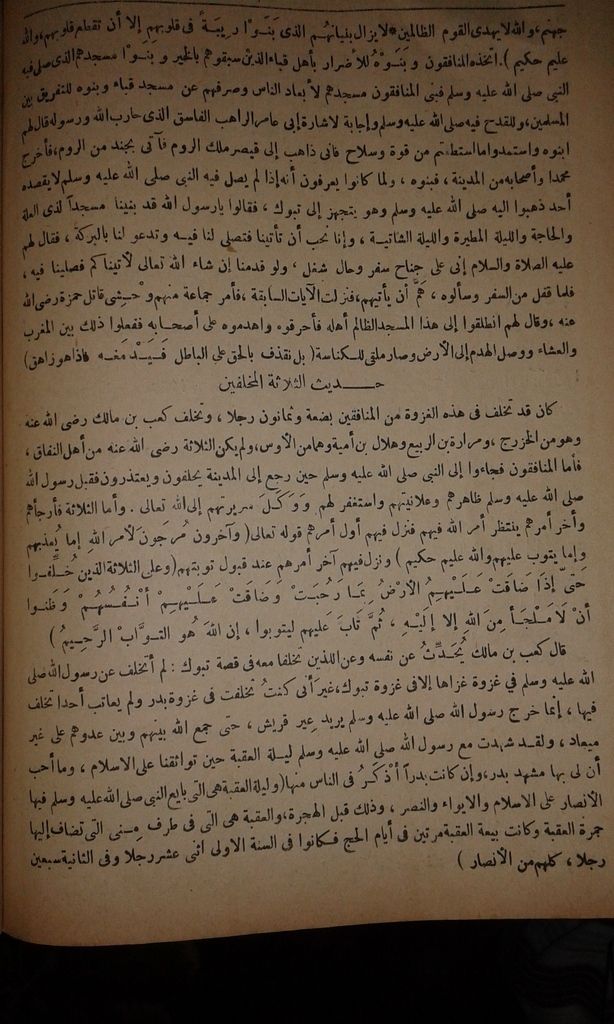 جهنم، والله لا يهدى القوم الظالمين * لا يزال بنيانهم الذى بَنَوْا رِيبَةً فى قلوبهم إلا أن تقطع قلوبهم، والله
عليم حكيم ). اتخذه المنافقون وبَنَوْهُ للأضرار بأهل قباء الذين سبقوهم بالخير وبنوا مسجدهم الذى صلى فيه
النبى صلى الله عليه وسلم فبنى المنافقون مسجدهم لأبعاد الناس وصرفهم عن مسجد قباء وبنوه للتفريق بين
المسلمين، وللقدح فيه صلى الله عليه وسلم وإجابة لاشارة إلى عامر الراهب الفاسق الذى حارب الله ورسوله قال لهم
ابنوه واستمدوا ما استطعتم من قوة وسلاح فانى ذاهب إلى قيصر ملك الروم فآتى بجند من الروم، فأخرج
محمدا وأصحابه من المدينة، فبنوه، ولما كانوا يعرفون أنه إذا لم يصل فيه النبى صلى الله عليه وسلم لا يقصده
أحد ذهبوا اليه صلى الله عليه وسلم وهو يتجهز إلى تبوك، فقالوا يا رسول الله قد بنينا مسجداً لذى العلة
والحاجة والليلة المطيرة والليلة الشاتية، وإنا نحب أن تأتينا فتصلى لنا فيه وتدعو لنا بالبركة، فقال لهم
عليه الصلاة والسلام إنى على جناح سفر وحال شغل، ولو قدمنا إن شاء الله تعالى لأتيناكم فصلينا فيه،
فلما قفل من السفر وسألوه، هَمَّ أن يأتيهم، فنزلت الآيات السابقة، فأمر جماعة منهم وحشى قاتل حمزة رضى الله
عنه، وقال لهم انطلقوا إلى هذا المسجد الظالم أهله فأحرقوه واهدموه على أصحابه ففعلوا ذلك بين المغرب
والعشاء ووصل الهدم إلى الأرض وصار ملقى للكناسة ( بل نقذف بالحق على الباطل فَيَدْمَغه فاذا هو زاهق)
حديث الثلاثة المخلفين
كان قد تخلف فى هذه الغزوة من المنافقين بضعة وثمانون رجلا، وتخلف كعب بن مالك رضى الله عنه
وهو من الخزرج، ومرارة بن الربيع وهلال بن أمية وهما من الأوس، ولم يكن الثلاثة رضى الله عنه من أهل النفاق،
فأما المنافقون فجاءوا إلى النبى صلى الله عليه وسلم حين رجع إلى المدينة يحلفون ويعتذرون فقبل رسول الله
صلى الله عليه وسلم ظاهرهم وعلانيتهم واستغفر لهم وَوَكَلَ سريرتهم إلى الله تعالى. وأما الثلاثة فأرجأهم
وأخر أمرهم ينتظر أمر الله فيهم فنزل فيهم أول أمرهم قوله تعالى( وَآخرون مُرجَونَ لأمر اللهِ إما يُعذبهم
وإما يتوب عليهم والله عليم حكيم ) ونزل فيهم آخر أمرهم عند قبول توبتهم(وعلى الثلاثة الذين خُلِّفوا
حَتَّى إذَا ضَاقَتْ عَلَيْهِمُ الأرْضُ بِمَا رَحُبَتْ وَضَاقَتْ عَلَيْهِمْ أنْفُسُهُمْ وَظَنوا
أنْ لاَ مَلْجَأ مِنَ اللهِ إلا إلَيْهِ، ثُمَّ تَابَ عَليهم ليتوبوا، إن اللهَ هُو التوَّابُ الرَّحِيمُ )
قال كعب بن مالك يُحَدِّثُ عن نفسه وعن اللذين تخلفا معه فى قصة تبوك : لم أتخلف عن رسول الله صلى
الله عليه وسلم في غزوة غزاها إلا فى غزوة تبوك، غير أنى كنتُ تخلفت فى غزوة بدر ولم يعاتب أحدا تخلف
فيها، إنما خرج رسول الله صلى الله عليه وسلم يريد عير قريش، حتى جمع الله بينهم وبين عدوهم على غير
ميعاد، ولقد شهدت مع رسول الله صلى الله عليه وسلم ليلة العقبة حين تواثقنا على الاسلام، وما أحب
أن لى بها مشهد بدر، وإن كانت بدراً أذكَرُ فى الناس منها(وليلة العقبة هى التى بايع النبى صلى الله عليه وسلم فيها
الأنصار على الاسلام والايواء والنصر، وذلك قبل الهجرة، والعقبة هى التى فى طرف مِنى التى تضاف إليها
جمرة العقبة وكانت بيعة العقبة مرتين فى أيام الحج فكانوا فى السنة الاولى اثنى عشر رجلا وفى الثانية سبعين
رجلا، كلهم من الأنصار )